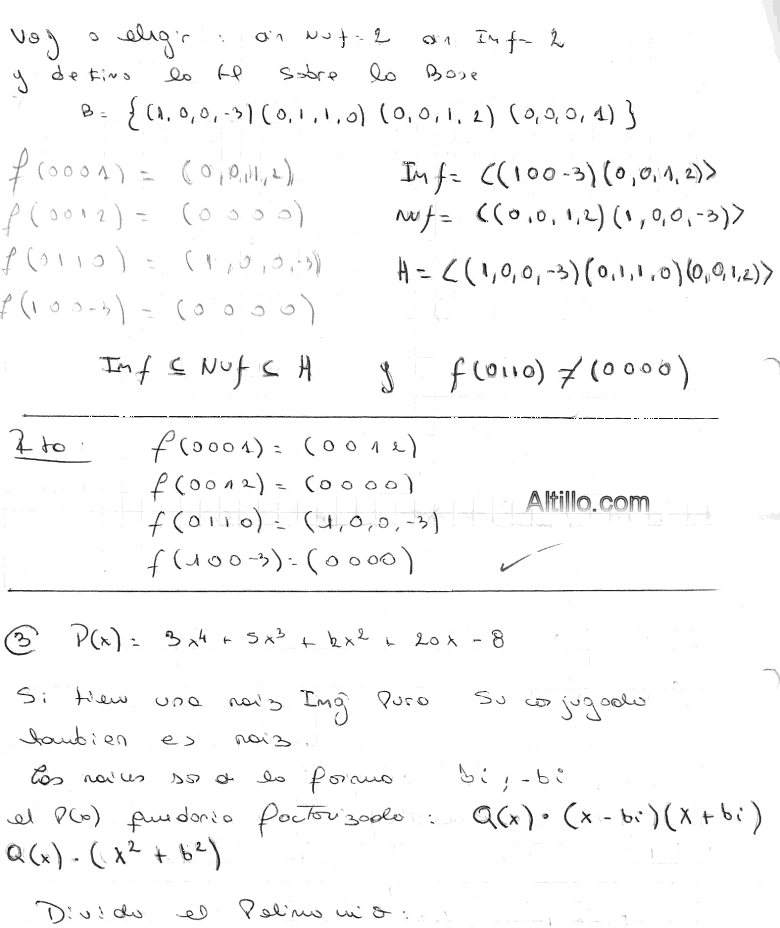 Voy a elegir : dim Nuf = 2 dim Imf = 2
y defino la tl sobre la Base
B = {(1,0,0,-3)(0,1,1,0)(0,0,1,2)(0,0,0,1)}
f(0001) = (0,0,1,2)
Imf = <(100-3)(0,0,1,2)>
f(0012) = (0000)
Nuf = <(0,0,1,2)(1,0,0,-3)>
f(0110) = (1,0,0,-3)
H = <(1,0,0,-3)(0,1,1,0)(0,0,1,2)>
f(100-3) = (0000)
Imf ⊆ Nuf ⊆ H y f(0110) ≠ (0000)
Rto: f(0001) = (0012)
f(0012) = (0000)
Altillo.com
f(0110) = (1,0,0,-3)
f(100-3) = (0000) ✓
③ P(x) = 3x⁴ + 5x³ + kx² + 20x - 8
Si tiene una raiz Img Puro su conjugado
tambien es raiz.
Las raices son de la forma bi ; -bi
el P(x) quedaria factorizado : Q(x) · (x - bi)(x + bi)
Q(x) · (x² + b²)
Divido el Polinomio: